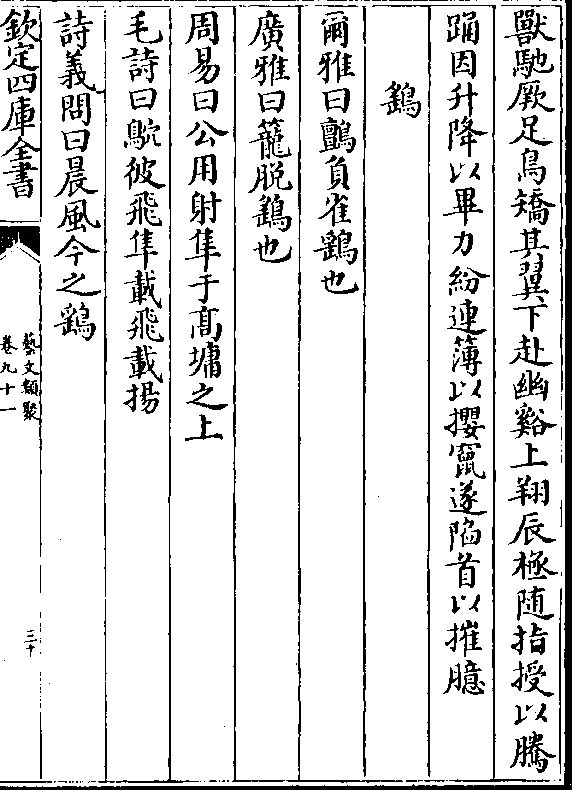 獸馳厥足鳥矯其翼下赴幽谿上翔辰極随指授以騰
踊因升降以畢力紛連簿以攖竄遂陷首以摧臆
鷂
爾雅曰鸇負雀鷂也
廣雅曰籠脱鷂也
周易曰公用射隼于髙墉之上
毛詩曰鴥彼飛隼載飛載揚
詩義問曰晨風今之鷂
欽定四庫全書
藝文類聚
卷九十一
三十